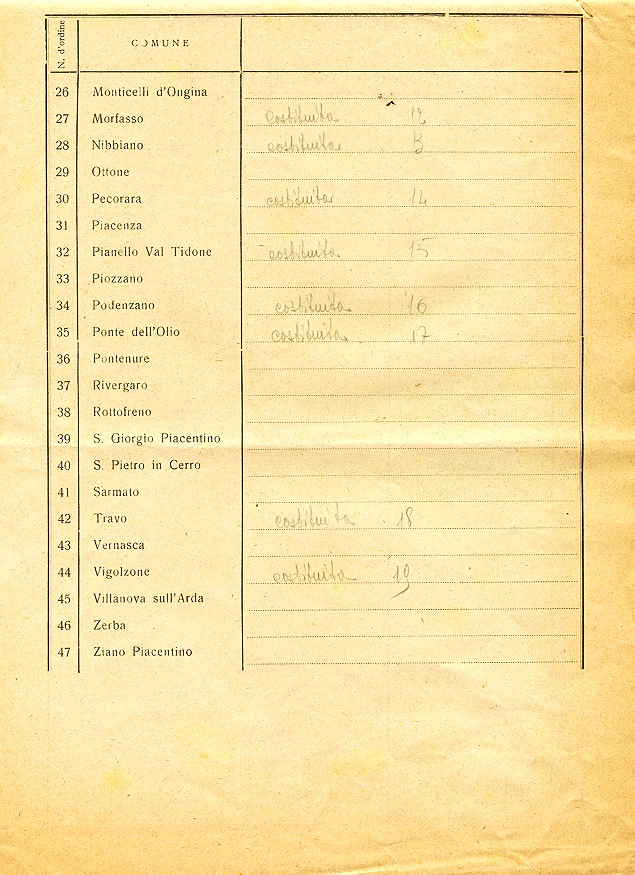 N. d'ordine COMUNE
26 Monticelli d'Ongina
27 Morfasso costituita 12
28 Nibbiano costituita
29 Ottone
30 Pecorara costituita
31 Piacenza
32 Pianello Val Tidone costituita 15
33 Piozzano
34 Podenzano costituita 16
35 Ponte dell'Olio costituita 17
36 Pontenure
37 Rivergaro
38 Rottofreno
39 S. Giorgio Piacentino
40 S. Pietro in Cerro
41 Sarmato
42 Travo costituita 18
43 Vernasca
44 Vigolzone costituita 19
45 Villanova sull'Arda
46 Zerba
47 Ziano Piacentino